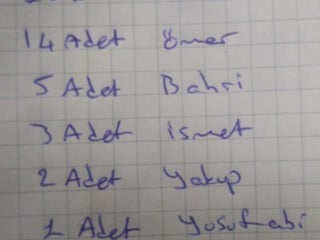 14 Adet Ömer
5 Adet Bahri
3 Adet ismet
2 Adet Yakup
1 Adet Yusuf abi